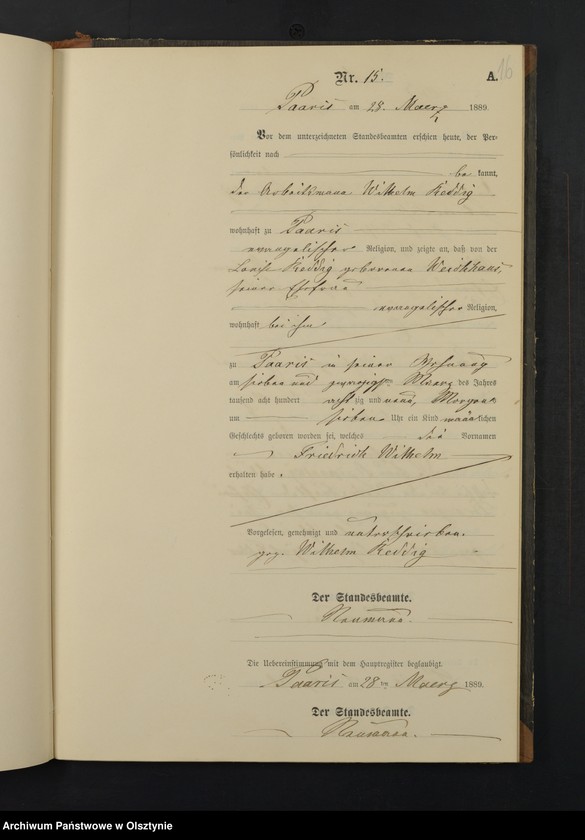 Nr. 15.
A. 16
Paaris am 28. Maerz 1889.
Vor dem unterzeichneten Standesbeamten erschien heute, der Per-
sönlichkeit nach
be kannt,
der Arbeitsmann Wilhelm Keddig
wohnhaft zu Paaris
evangelischer Religion, und zeigte an, daß von der
Louise Keddig geborenen
seiner Ehefrau
evangelischer Religion,
wohnhaft bei ihm
zu Paaris in seiner Wohnung
am sieben und zwanzigsten Maerz des Jahres
tausend acht hundert acht zig und neun, Morgens
um sieben Uhr ein Kind männlichen
Geschlechts geboren worden sei, welches die Vornamen
Friedrich Wilhelm
erhalten habe.
Vorgelesen, genehmigt und unterschrieben.
gez. Wilhelm Keddig
Der Standesbeamte.
Naumann.
Die Uebereinstimmung mit dem Hauptregister beglaubigt.
Paaris am 28 ten Maerz 1889.
Der Standesbeamte.
Naumann.
Archiwum Państwowe w Olsztynie